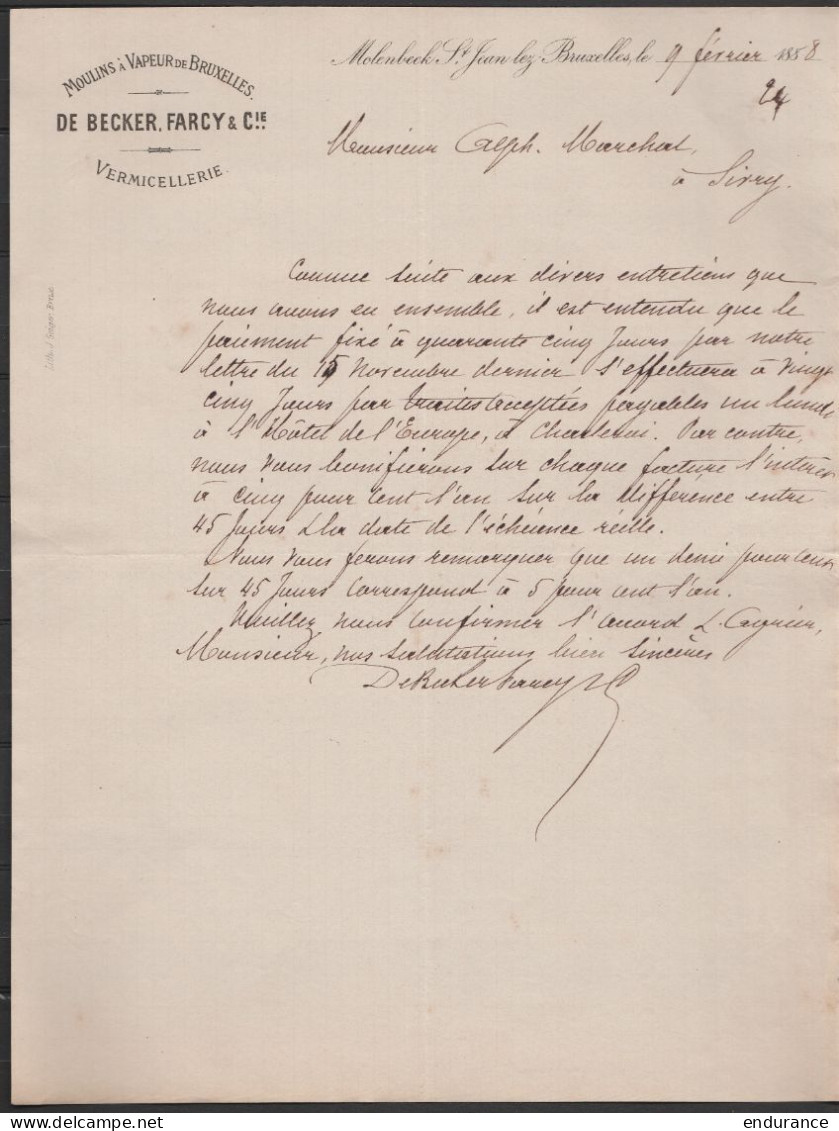 MOULINS À VAPEUR DE BRUXELLES.
DE BECKER, FARCY & CIE.
VERMICELLERIE.
Molenbeek St. Jean lez Bruxelles, le 9 février 1888
24
Monsieur Alph. Marchal,
à Sivry.
Comme suite aux divers entretiens que
nous avons eu ensemble, il est entendu que le
paiement fixé à quarante cinq jours par notre
lettre du 15 Novembre dernier s'effectuera à vingt
cinq jours par traites acceptées payables un lundi
à l'Hôtel de l'Europe, à Charleroi. Par contre,
nous vous bonifierons sur chaque facture l'intérêt
à cinq pour cent l'an sur la différence entre
45 jours & la date de l'échéance réelle.
Nous vous ferons remarquer que un demi pour cent
sur 45 jours correspond à 5 pour cent l'an.
Veuillez nous confirmer l'accord & agréer,
Monsieur, nos salutations bien sincères
De Becker Farcy & C
endurance